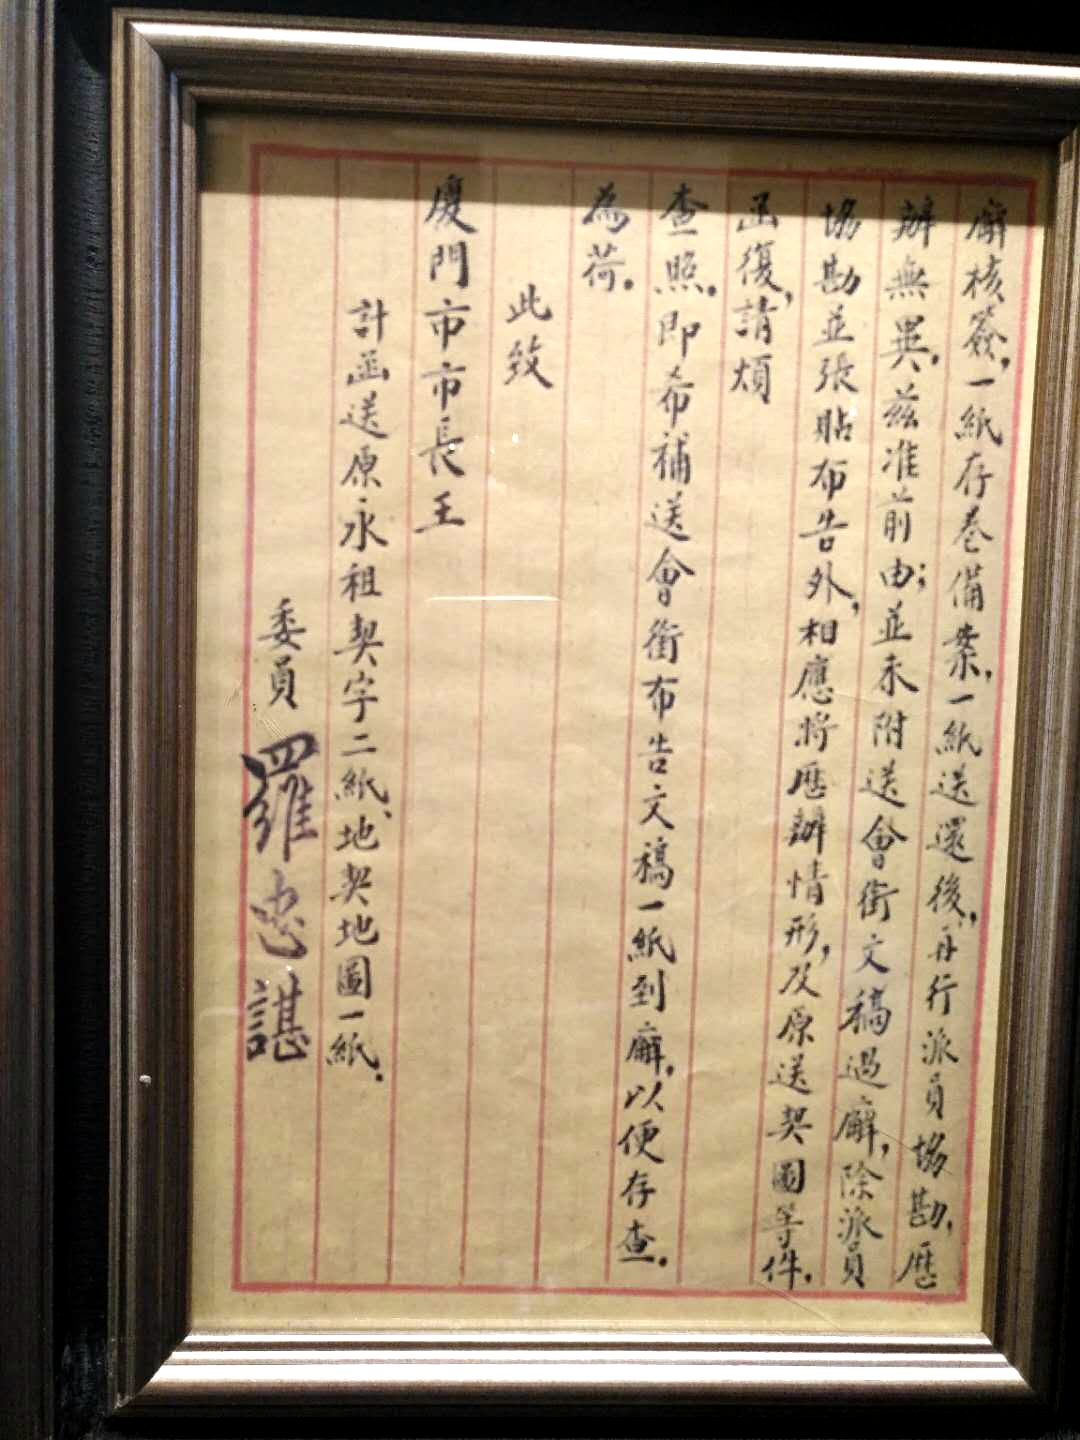 廨核簽，一紙存卷備案，一紙送還後，再行派員協勘，歷
辦無異。茲准前由；並未附送會銜文稿過廨，除派員
協勘並張貼布告外，相應將歷辦情形，及原送契圖等件。
函復，請煩
查照。即希補送會銜布告文稿一紙到廨，以便存查。
為荷。
此致
廈門市市長王
計函送原永租契字二紙、地契地圖一紙.
委員羅忠諶